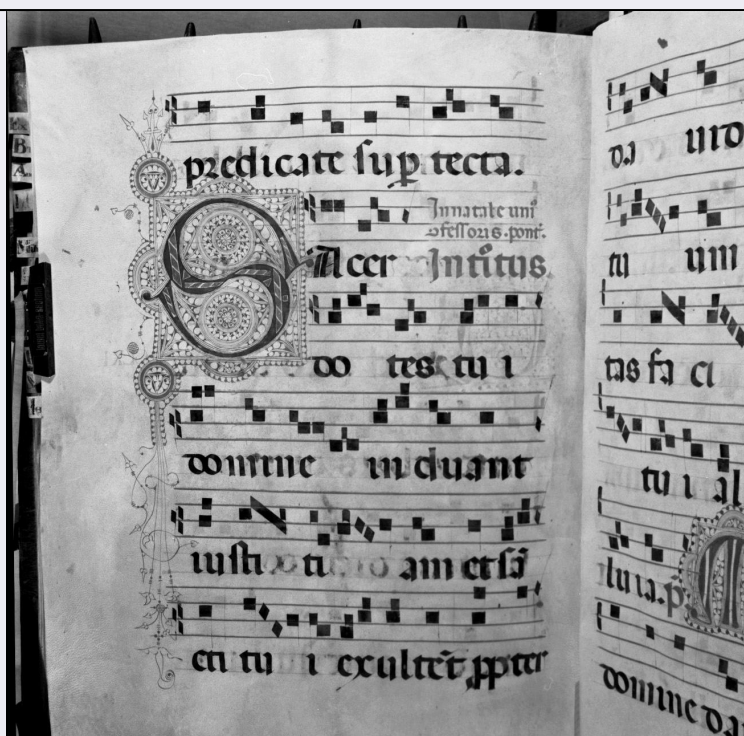 predicate sup tecta.
In natale uni
ofessoris. pont.
SAcer Introitus.
do tes tu i
domine induant
iusti ti am et sā
cti tu i exultēt ppter
da uid
tu um
tas fa ci
tu i al
luia. p.
domine da